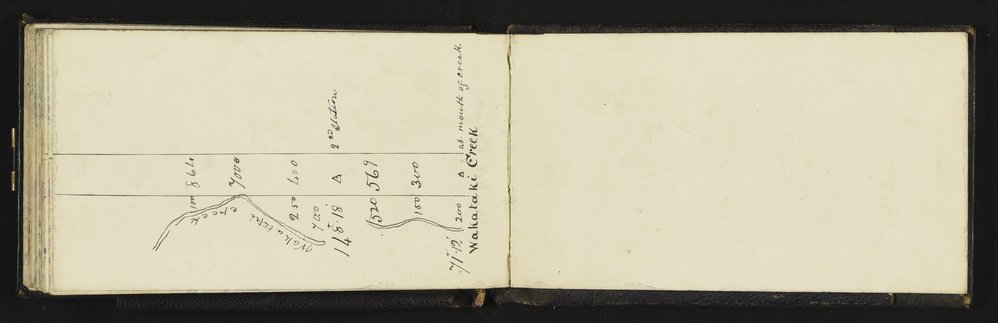 100 864
7000
Wakataki creek
250 400
700
148°·18 Δ 2nd Station
520 569
150 300
71°·12' 200 Δ at mouth of creek
Wakataki Creek